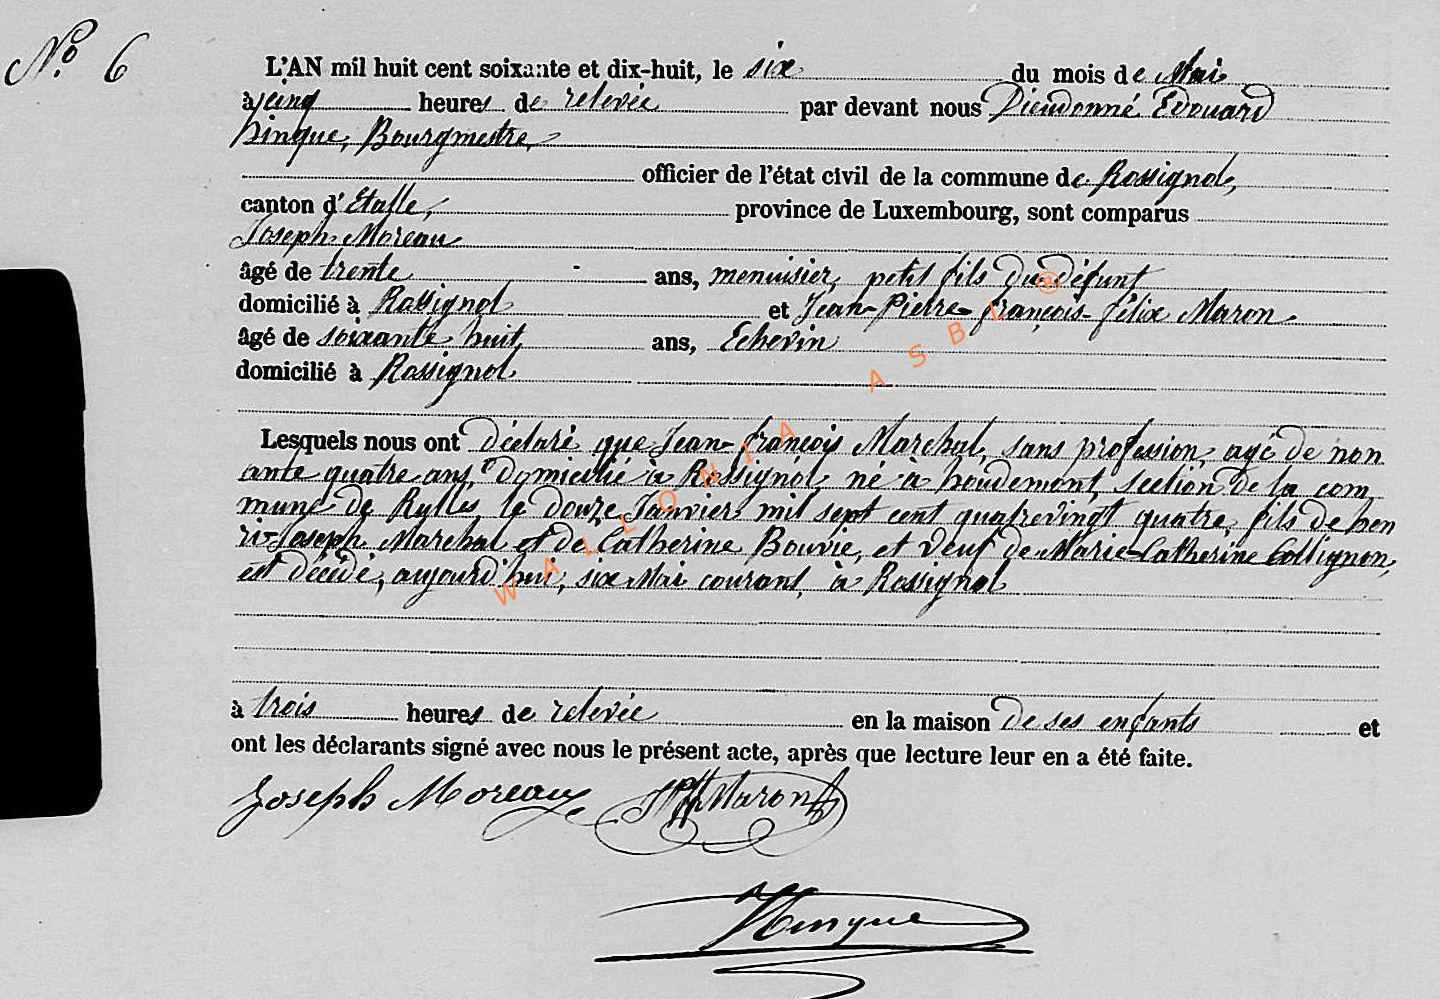 N.o 6
L'AN mil huit cent soixante et dix-huit, le six du mois de Mai
à cinq heures de relevée par devant nous Dieudonné Edouard
hinque, Bourgmestre,
officier de l'état civil de la commune de Rossignol,
canton d'Etalle, province de Luxembourg, sont comparus
Joseph Moreau
âgé de trente ans, menuisier, petit fils du défunt
domicilié à Rossignol et Jean-Pierre-françois-félix Maron
âgé de soixante huit ans, Echevin
domicilié à Rossignol
Lesquels nous ont déclaré que Jean-françois Marchal, sans profession, agé de non
ante quatre ans, domicilié à Rossignol, né à houdemont, section de la com
mune de Rulles, le douze Janvier mil sept cent quatrevingt quatre, fils de hen
ri-Joseph Marchal et de Catherine Bouvie, et veuf de Marie-Catherine Collignon,
est décédé, aujourd'hui, six Mai courant, à Rossignol
à trois heures de relevée en la maison de ses enfants et
ont les déclarants signé avec nous le présent acte, après que lecture leur en a été faite.
Joseph Moreau JPff Maron
Hinque
WALLONIA ASBL ®